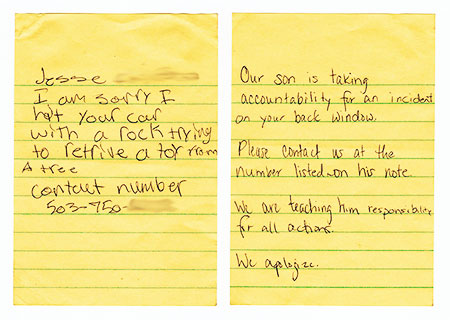 Jesse
I am sorry I
hit your car
with a rock trying
to retrive a toy from
A tree
contact number
503-950-
Our son is taking
accountability for an incident
on your back window.
Please contact us at the
number listed on his note
We are teaching him
for all actions.
We apologize.